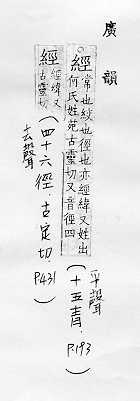 廣韻
經 常也絞也徑也亦經緯又姓出
何氏姓苑古靈切又音徑四
(十五青. P.193)
平聲
經 經緯又
古靈切
(四十六徑. 古定切. P.431)
去聲